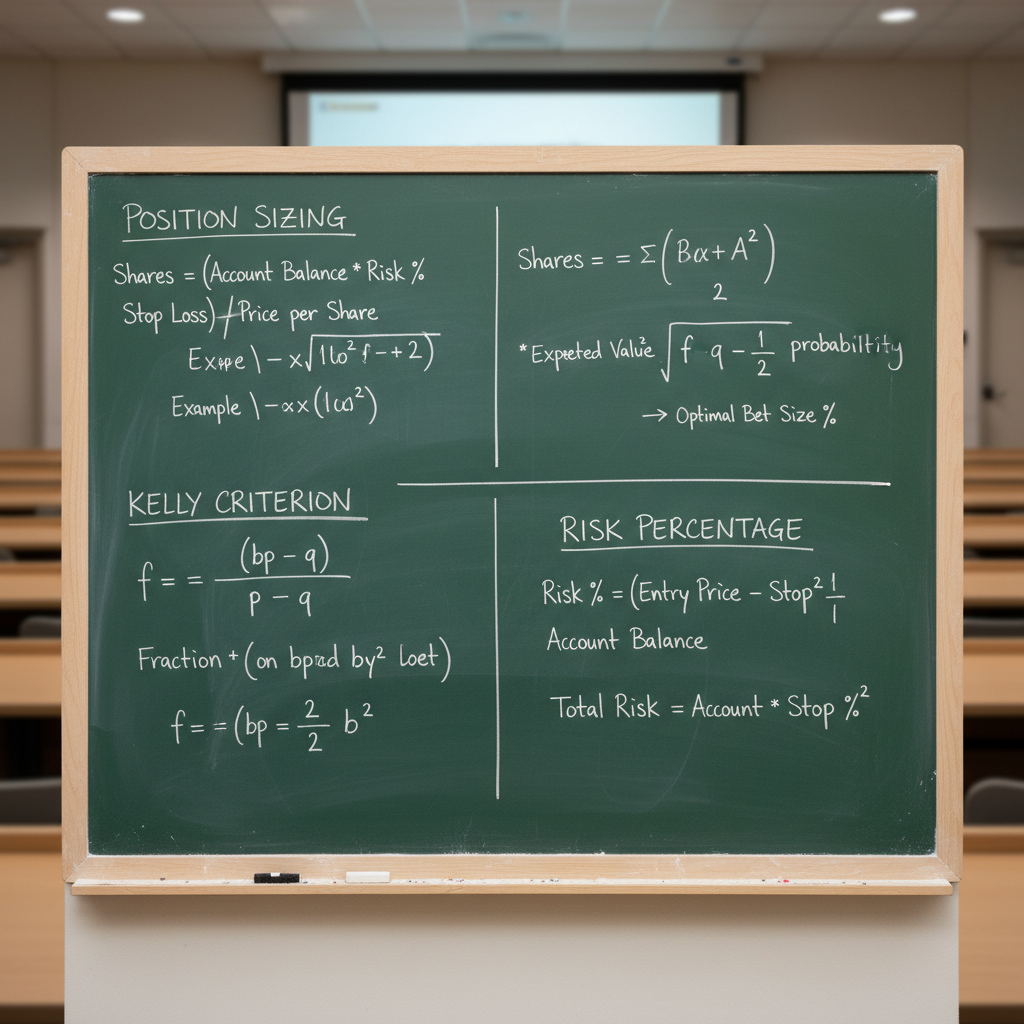 POSITION SIZING
Shares = (Account Balance * Risk %
Stop Loss) / Price per Share
\ - x√
Example \ - ∝x (1cos²)
Shares = = Σ(B∝+A²)
2
*Expected Value² √f q - 1/2 probabiltity
→ Optimal Bet Size %
KELLY CRITERION
f = = (bp - q)
p - q
Fraction + (on by² loet)
f = = (bp = 2/2 b²
RISK PERCENTAGE
Risk % = (Entry Price - Stop² 1/1
Account Balance
Total Risk = Account * Stop %²